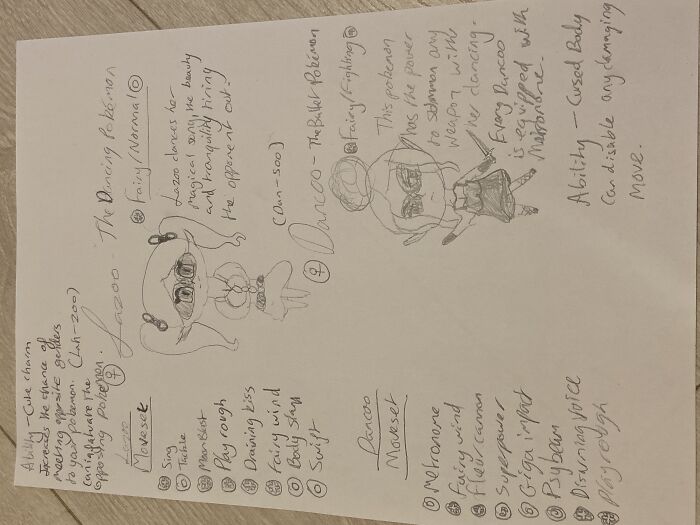 Ability - Cute charm
Increases the chance of
meeting opposite genders
to your Pokemon. (Lah-zoo)
Can infatuate the
opposing pokemon.
♀ Lazoo - The Dancing Pokémon
Fairy/Normal
Lazoo dances her
magical song, the beauty
and tranquility tiring
the opponent out.
Lazoo
Moveset
Sing
Tackle
Moonblast
Play rough
Draining kiss
Fairy wind
Body slap
Swift
(Dan-soo)
♀ Dancoo - The Ballet Pokémon
Fairy/Fighting
This pokemon
has the power
to summon any
weapon with
her dancing.
Every Dancoo
is equipped with
Metronome.
Ability - Cused Body
Can disable any damaging
move.
Dancoo
Moveset
Metronome
Fairy wind
Fleur cannon
Superpower
Giga impact
Psybeam
Disarming voice
Play rough